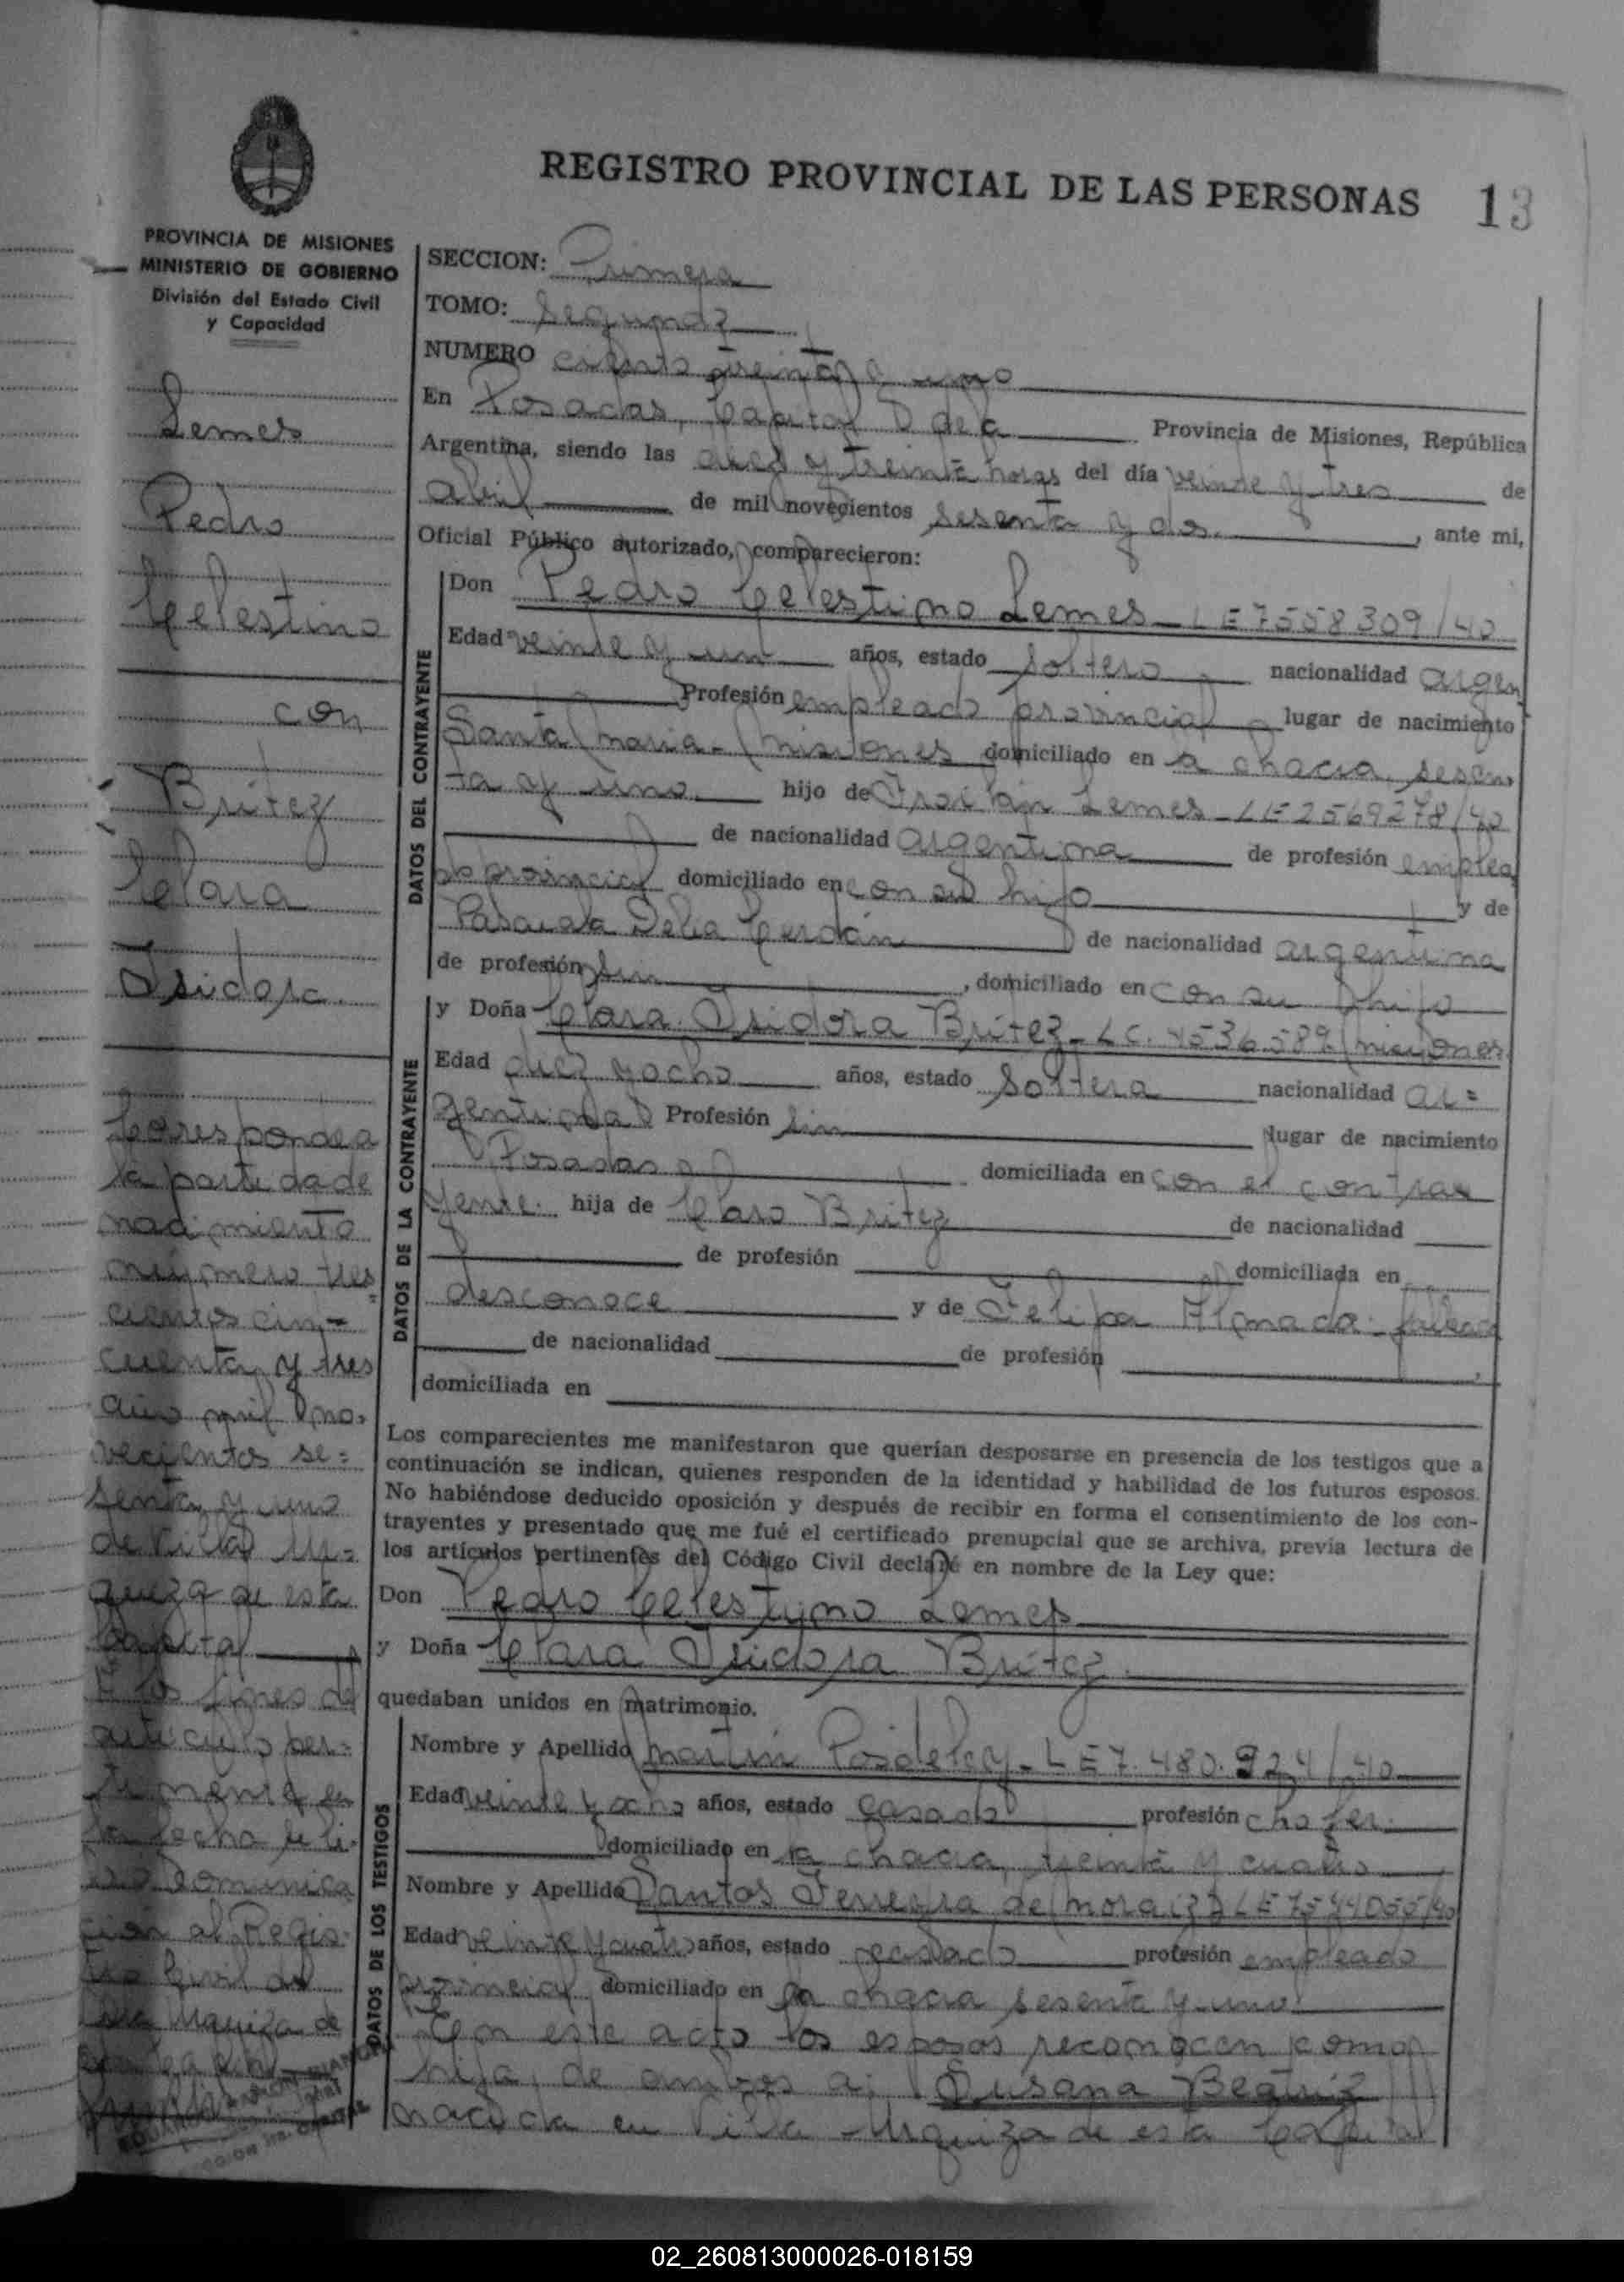 REGISTRO PROVINCIAL DE LAS PERSONAS 13
PROVINCIA DE MISIONES
MINISTERIO DE GOBIERNO
División del Estado Civil
y Capacidad
Lemes
Pedro
Celestino
con
Britez
Clara
Isidora
Corresponde a
la partida de
nacimiento
número tres
cientos cin=
cuenta y tres
año mil no-
vecientos se=
senta y uno
de Villa Ur=
quiza de esta
Capital
A los fines del
artículo per=
tinente en
la fecha se li-
comunica
ción al Regis-
tro Civil de
Urquiza de
SECCION: Primera
TOMO: Segundo
NUMERO ciento treinta y uno
En Posadas, Capital de la Provincia de Misiones, República
Argentina, siendo las diez y treinta horas del día veinte y tres de
abril de mil novecientos sesenta y dos , ante mi,
Oficial Público autorizado, comparecieron:
DATOS DEL CONTRAYENTE
Don Pedro Celestino Lemes - LE 7558309/40
Edad veinte y un años, estado soltero nacionalidad argen
Profesión empleado provincial lugar de nacimiento
Santa María - Misiones domiciliado en la chacra sesen
ta y uno hijo de Froilán Lemes - LE 2569278/40
de nacionalidad argentina de profesión emplea
do provincial domiciliado en con su hijo y de
Delia Cerdán de nacionalidad argentina
de profesión sin , domiciliado en con su hijo
DATOS DE LA CONTRAYENTE
y Doña Clara Isidora Britez - LC. 4536589/Misiones
Edad diez y ocho años, estado soltera nacionalidad ar=
gentina Profesión sin lugar de nacimiento
Posadas domiciliada en con el contra
yente. hija de Claro Britez de nacionalidad
de profesión domiciliada en
desconoce y de Felipa Almada - falleció
de nacionalidad de profesión ,
domiciliada en
Los comparecientes me manifestaron que querían desposarse en presencia de los testigos que a
continuación se indican, quienes responden de la identidad y habilidad de los futuros esposos.
No habiéndose deducido oposición y después de recibir en forma el consentimiento de los con-
trayentes y presentado que me fué el certificado prenupcial que se archiva, previa lectura de
los artículos pertinentes del Código Civil declaré en nombre de la Ley que:
Don Pedro Celestino Lemes
y Doña Clara Isidora Britez
quedaban unidos en matrimonio.
DATOS DE LOS TESTIGOS
Nombre y Apellido Martín Posdeley - LE 7.480.924/40
Edad veinte y ocho años, estado casado profesión chofer.
domiciliado en la chacra treinta y cuatro
Nombre y Apellido Santos Ferreyra de Moraiz LE 7544055/40
Edad veinte y cuatro años, estado casado profesión empleado
provincial domiciliado en la chacra sesenta y uno
En este acto los esposos reconocen como
hija de ambos a: Susana Beatriz
nacida en Villa Urquiza de esta Capital
02_260813000026-018159